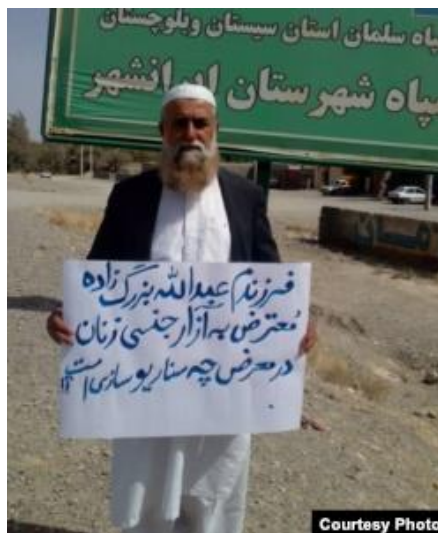 سپاه سلمان استان سیستان وبلوچستان
سپاه شهرستان ایرانشهر
فرزندم عبدالله بزرگ زاده
مُعترض به آزار جنسی زنان
در معرض چه سناریو سازی است
Courtesy Photo